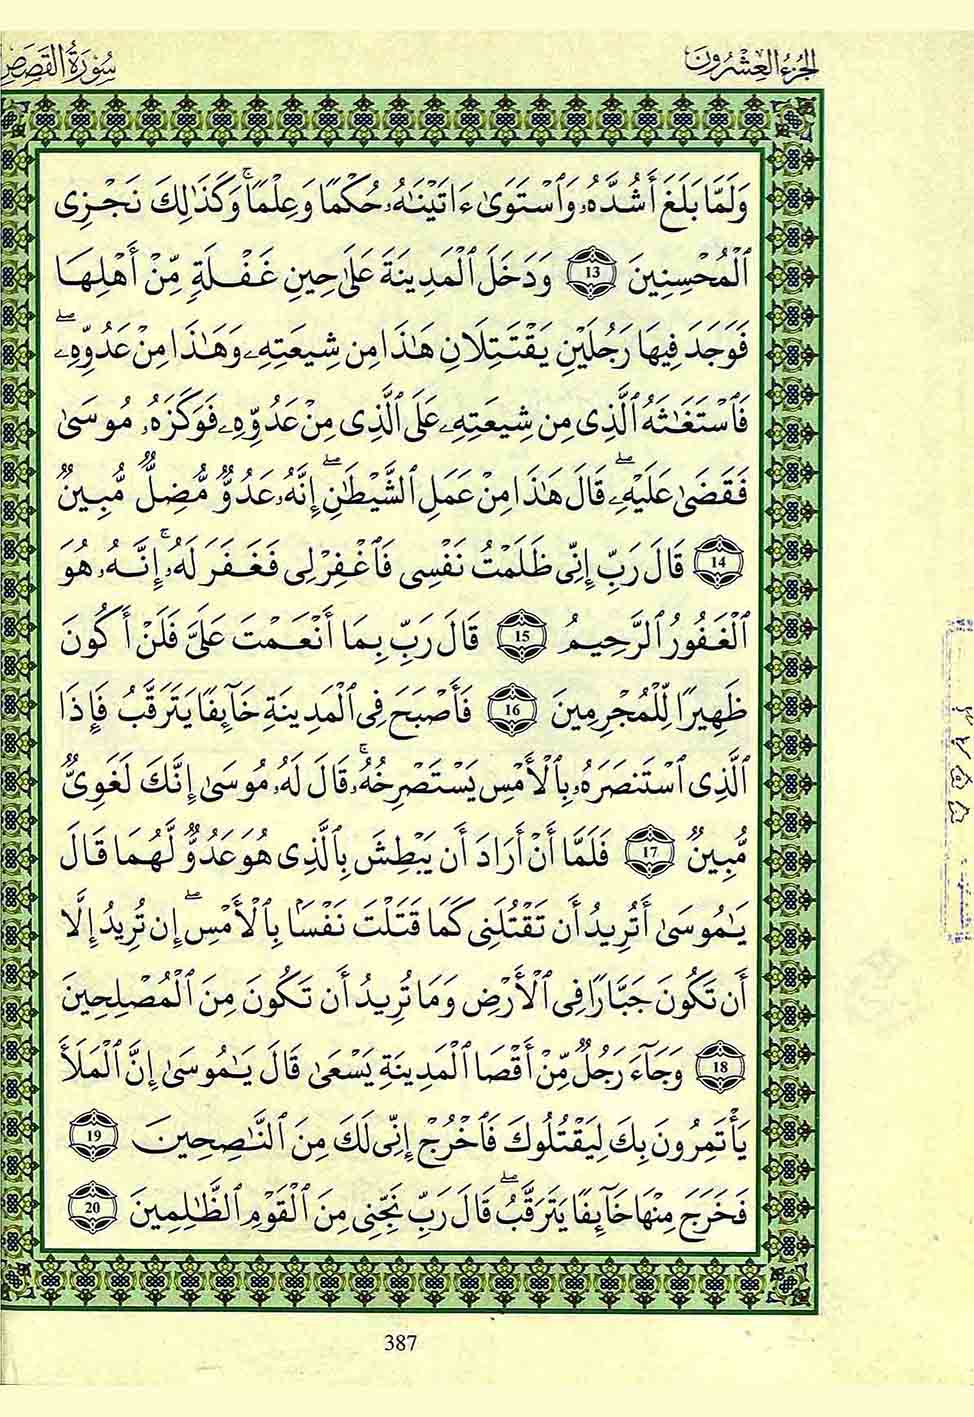 الجزء العشرون
سورة القصص
وَلَمَّا بَلَغَ أَشُدَّهُۥ وَٱسْتَوَىٰٓ ءَاتَيْنَٰهُ حُكْمًا وَعِلْمًاۚ وَكَذَٰلِكَ نَجْزِى
ٱلْمُحْسِنِينَ 13 وَدَخَلَ ٱلْمَدِينَةَ عَلَىٰ حِينِ غَفْلَةٍ مِّنْ أَهْلِهَا
فَوَجَدَ فِيهَا رَجُلَيْنِ يَقْتَتِلَانِ هَٰذَا مِن شِيعَتِهِۦ وَهَٰذَا مِنْ عَدُوِّهِۦۖ
فَٱسْتَغَٰثَهُ ٱلَّذِى مِن شِيعَتِهِۦ عَلَى ٱلَّذِى مِنْ عَدُوِّهِۦ فَوَكَزَهُۥ مُوسَىٰ
فَقَضَىٰ عَلَيْهِۖ قَالَ هَٰذَا مِنْ عَمَلِ ٱلشَّيْطَٰنِۖ إِنَّهُۥ عَدُوٌّ مُّضِلٌّ مُّبِينٌ
14 قَالَ رَبِّ إِنِّى ظَلَمْتُ نَفْسِى فَٱغْفِرْ لِى فَغَفَرَ لَهُۥۚ إِنَّهُۥ هُوَ
ٱلْغَفُورُ ٱلرَّحِيمُ 15 قَالَ رَبِّ بِمَا أَنْعَمْتَ عَلَىَّ فَلَنْ أَكُونَ
ظَهِيرًا لِّلْمُجْرِمِينَ 16 فَأَصْبَحَ فِى ٱلْمَدِينَةِ خَآئِفًا يَتَرَقَّبُ فَإِذَا
ٱلَّذِى ٱسْتَنصَرَهُۥ بِٱلْأَمْسِ يَسْتَصْرِخُهُۥۚ قَالَ لَهُۥ مُوسَىٰ إِنَّكَ لَغَوِىٌّ
مُّبِينٌ 17 فَلَمَّا أَنْ أَرَادَ أَن يَبْطِشَ بِٱلَّذِى هُوَ عَدُوٌّ لَّهُمَا قَالَ
يَٰمُوسَىٰ أَتُرِيدُ أَن تَقْتُلَنِى كَمَا قَتَلْتَ نَفْسًا بِٱلْأَمْسِۖ إِن تُرِيدُ إِلَّا
أَن تَكُونَ جَبَّارًا فِى ٱلْأَرْضِ وَمَا تُرِيدُ أَن تَكُونَ مِنَ ٱلْمُصْلِحِينَ
18 وَجَآءَ رَجُلٌ مِّنْ أَقْصَا ٱلْمَدِينَةِ يَسْعَىٰ قَالَ يَٰمُوسَىٰ إِنَّ ٱلْمَلَأَ
يَأْتَمِرُونَ بِكَ لِيَقْتُلُوكَ فَٱخْرُجْ إِنِّى لَكَ مِنَ ٱلنَّٰصِحِينَ 19
فَخَرَجَ مِنْهَا خَآئِفًا يَتَرَقَّبُۖ قَالَ رَبِّ نَجِّنِى مِنَ ٱلْقَوْمِ ٱلظَّٰلِمِينَ 20
387